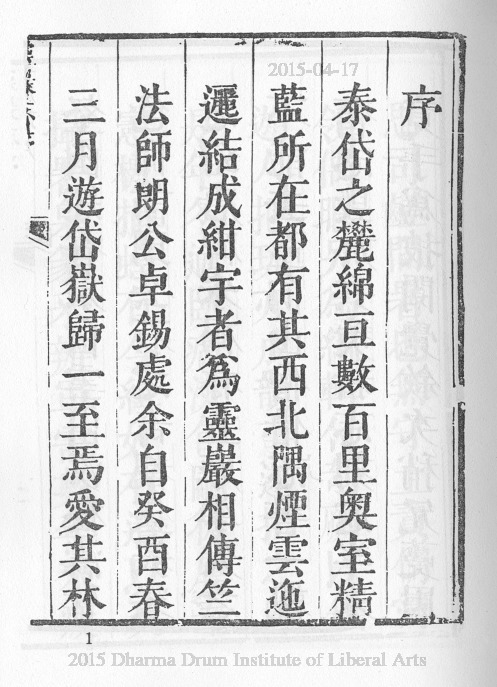 序
泰岱之麓綿亘數百里奥室精
藍所在都有其西北隅煙雲迤
邐結成紺宇者為靈巖相傳竺
法師朗公卓錫處余自癸酉春
三月遊岱嶽歸一至焉愛其林
2015-04-17
1
2015 Dharma Drum Institute of Liberal Arts